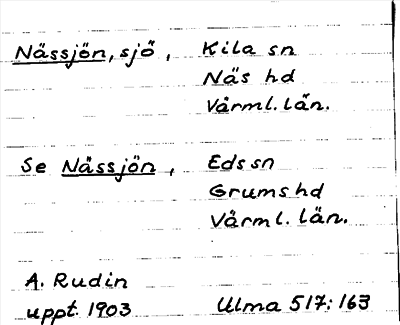 Nässjön, sjö, Kila sn
Näs hd
Värml. län.
Se Nässjön, Eds sn
Grums hd
Värml. län.
A. Rudin
uppt. 1903 Ulma 517:163